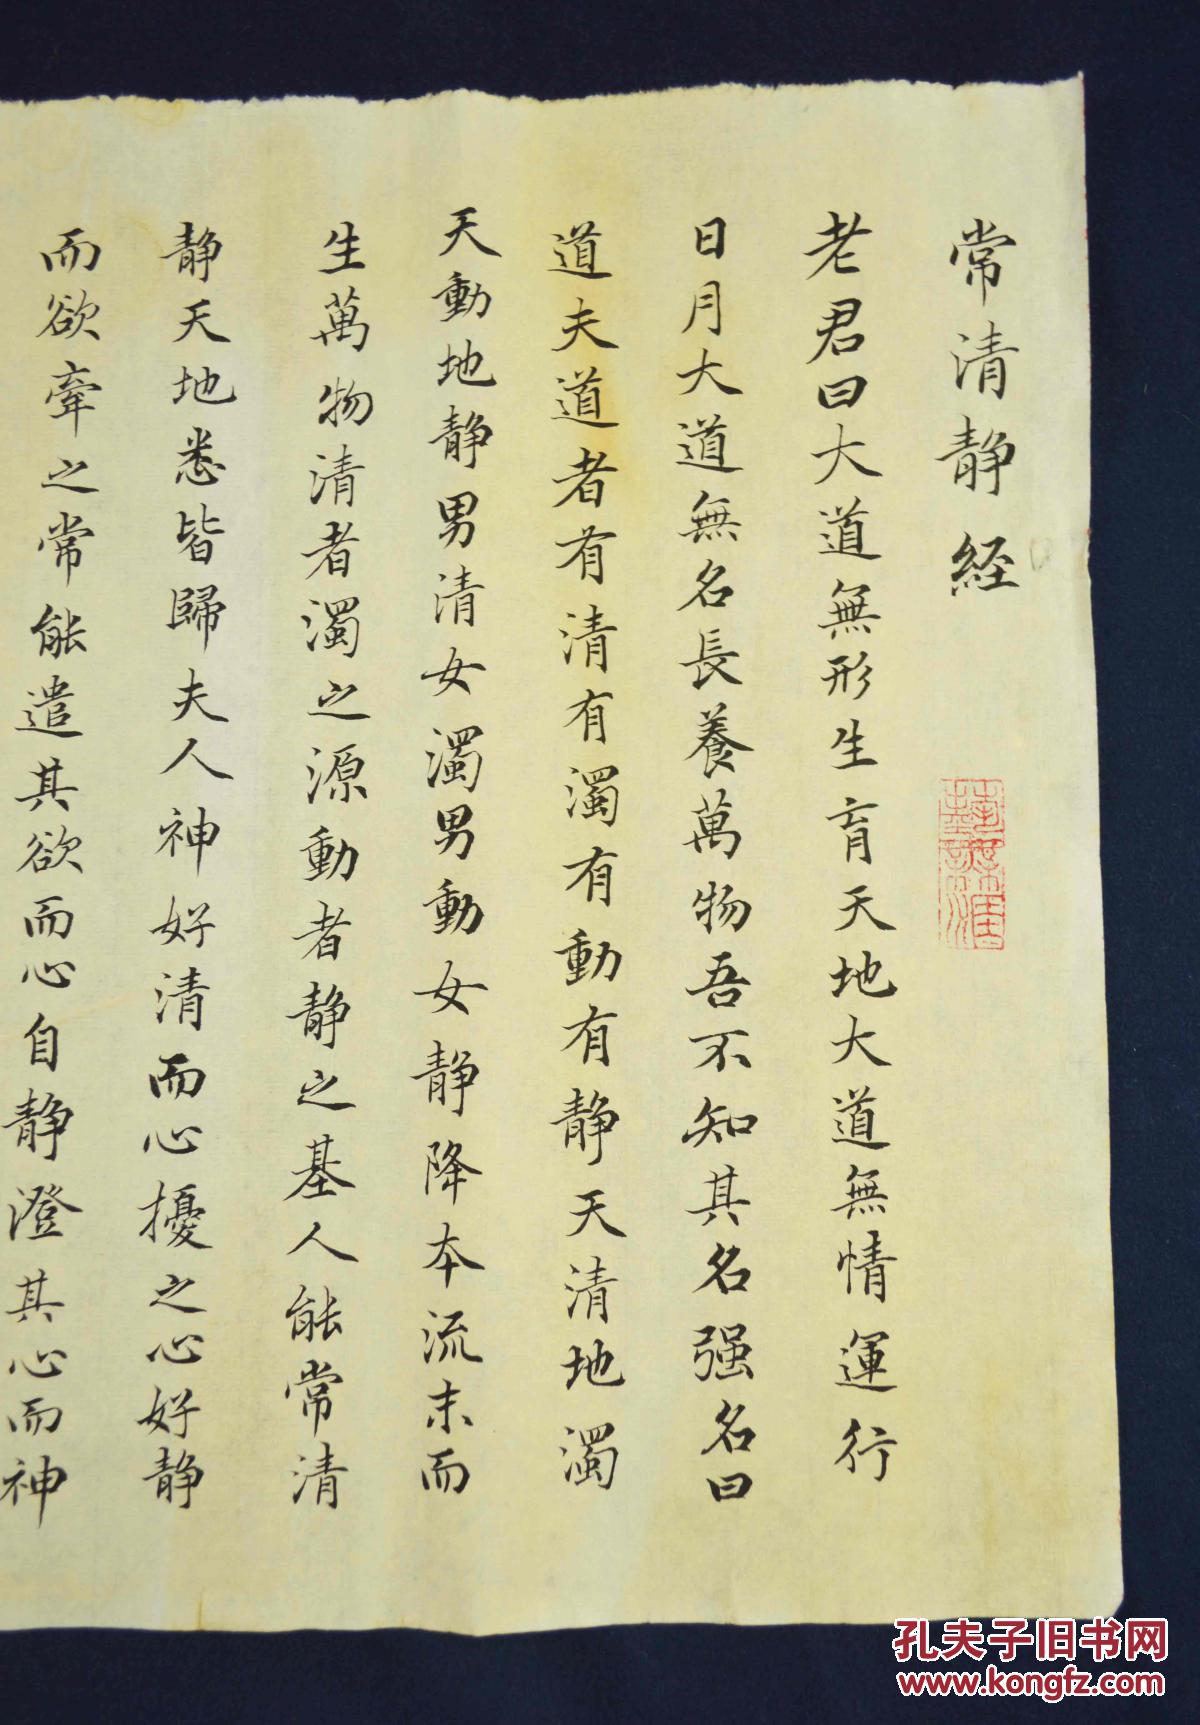 常清静経
老君曰大道無形生育天地大道無情運行
日月大道無名長養萬物吾不知其名强名曰
道夫道者有清有濁有動有静天清地濁
天動地静男清女濁男動女静降本流末而
生萬物清者濁之源動者静之基人能常清
静天地悉皆歸夫人神好清而心擾之心好静
而欲牽之常能遣其欲而心自静澄其心而神
孔夫子旧书网
www.kongfz.com